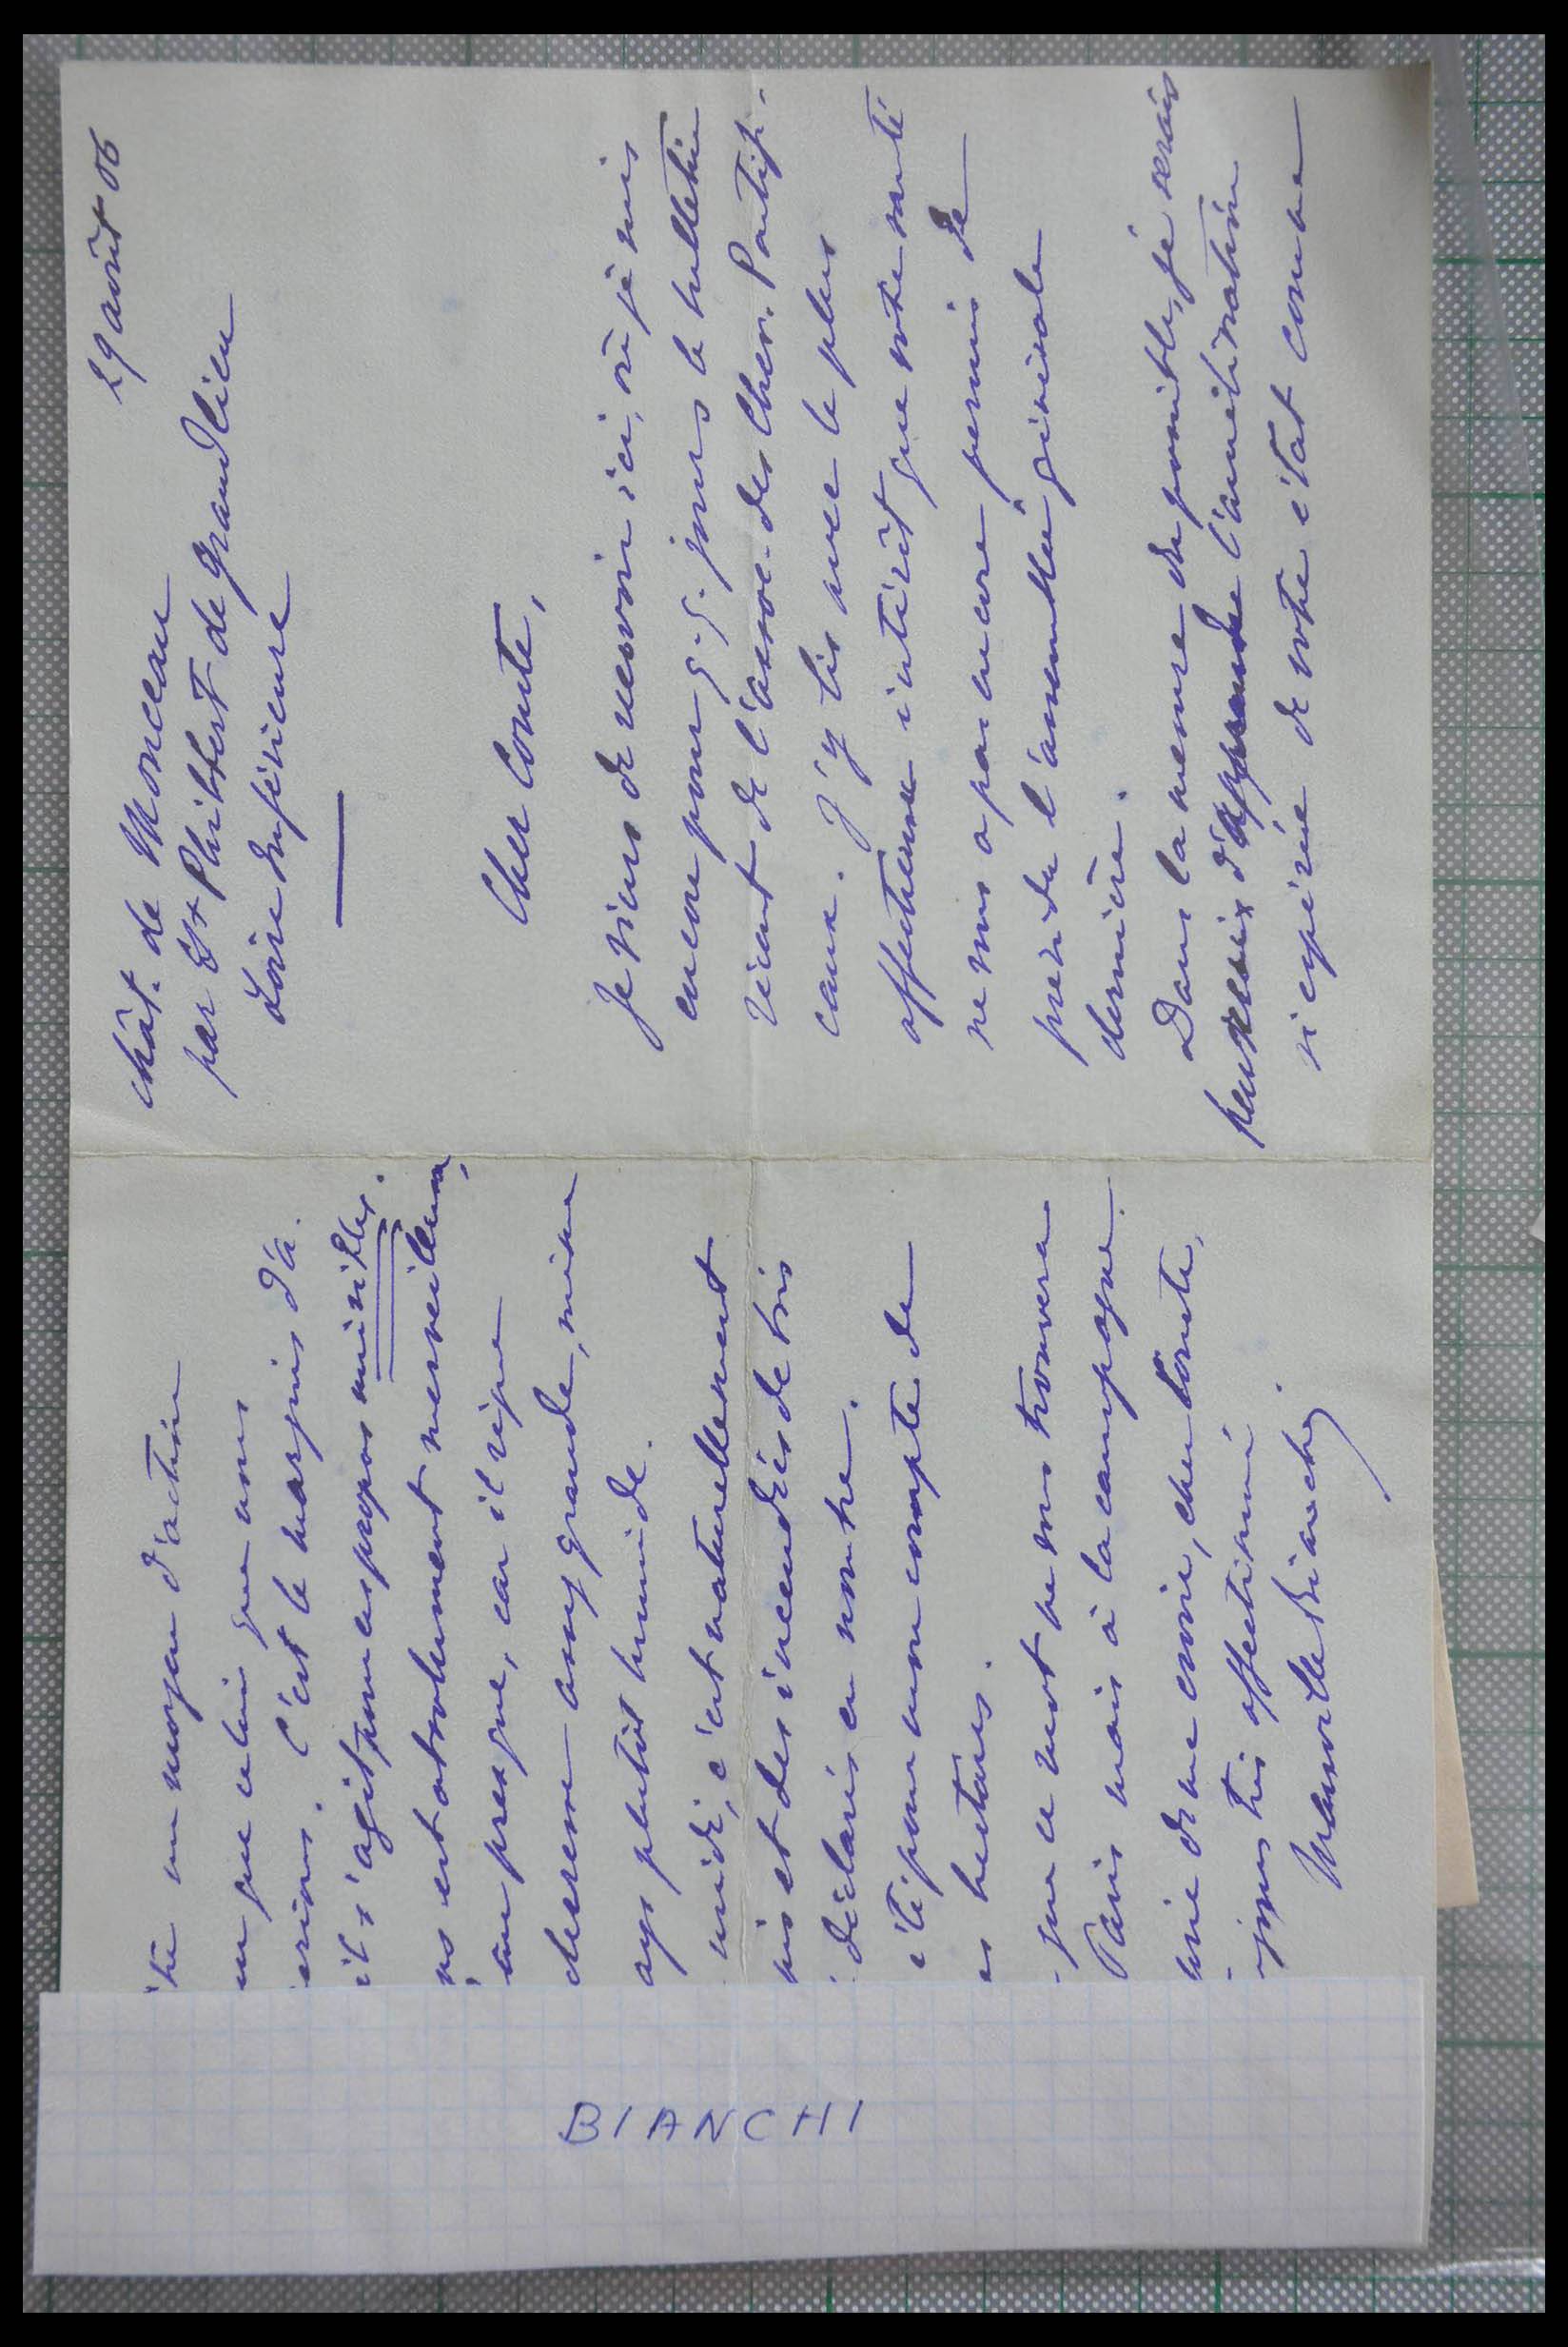 29 août 06
Chât. de Monceau
par St Philbert de Grandlieu
Loire Inférieure
Cher Comte,
Je viens de recevoir ici, où je suis
encore pour q.q. jours le bulletin
récent de l'assoc. des Chev. Pontifi-
caux. J'y lis avec le plus
affectueux intérêt que votre santé
ne vous a pas encore permis de
présider l'assemblée générale
dernière.
Dans la mesure du possible, je serais
heureux d'apprendre l'amélioration
si espérée de votre état comme
un moyen d'action
que celui que vous
. C'est le marquis d'A.
il s'agit, pour ces propos nuisibles.
est absolument merveilleux,
presque, car il règne
assez grande, même
plutôt humide.
midi, c'est naturellement
et des incendies de bois
déclarés en nombre.
été pour mon compte de
hectares.
que ce mot ne vous trouvera
Paris mais à la campagne.
de me croire, cher Comte,
toujours très affectionné
Bianchi
BIANCHI